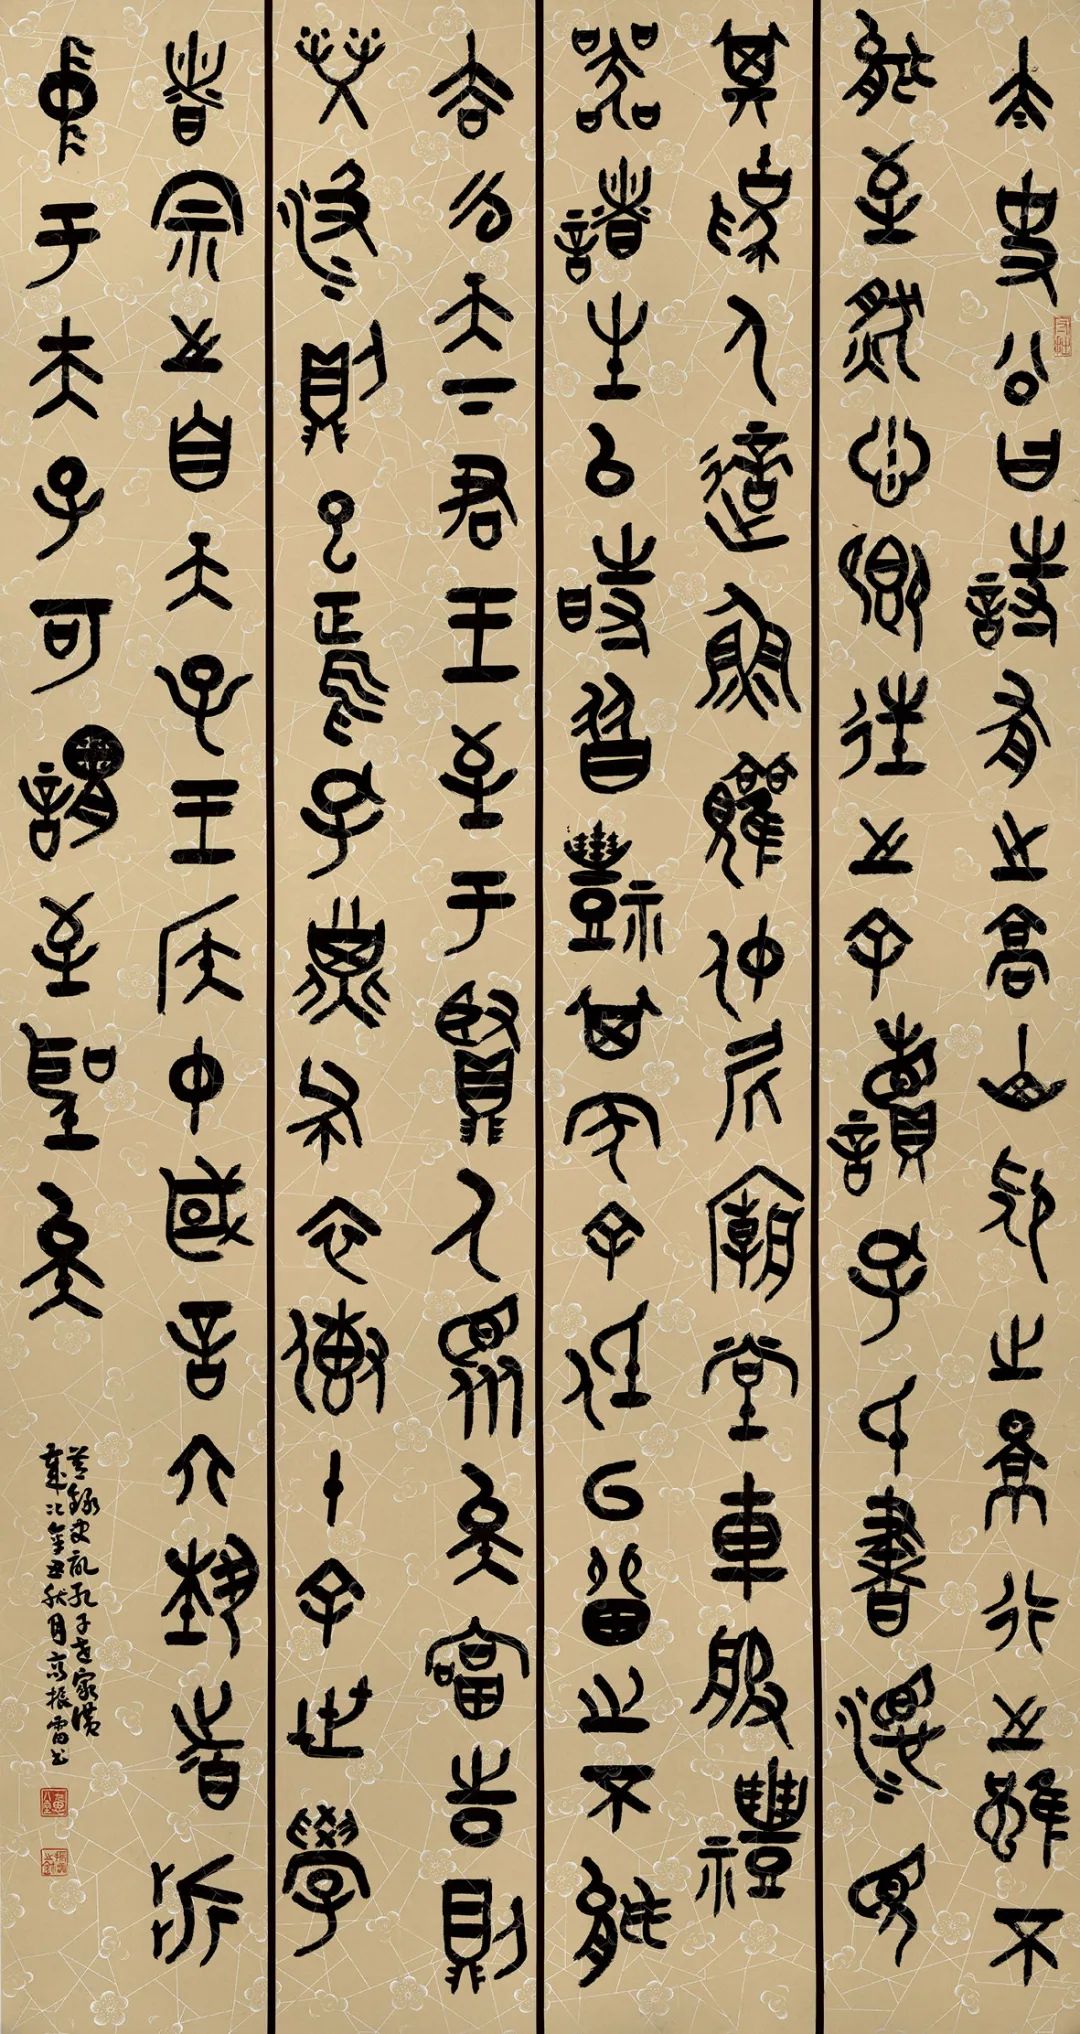 太史公曰詩有之高山卬止景行之雖不
能至然心鄉往之余讀孔氏書想見
其為人適魯觀仲尼廟堂車服禮
器諸生以時習禮其家余低回留之不能
去云天下君王至于賢人眾矣當時則
榮沒則已焉孔子布衣傳十余世學
者宗之自天子王侯中國言六藝者折
中于夫子可謂至聖矣
节錄史記孔子世家讚
歲次辛丑秋月高振雷书